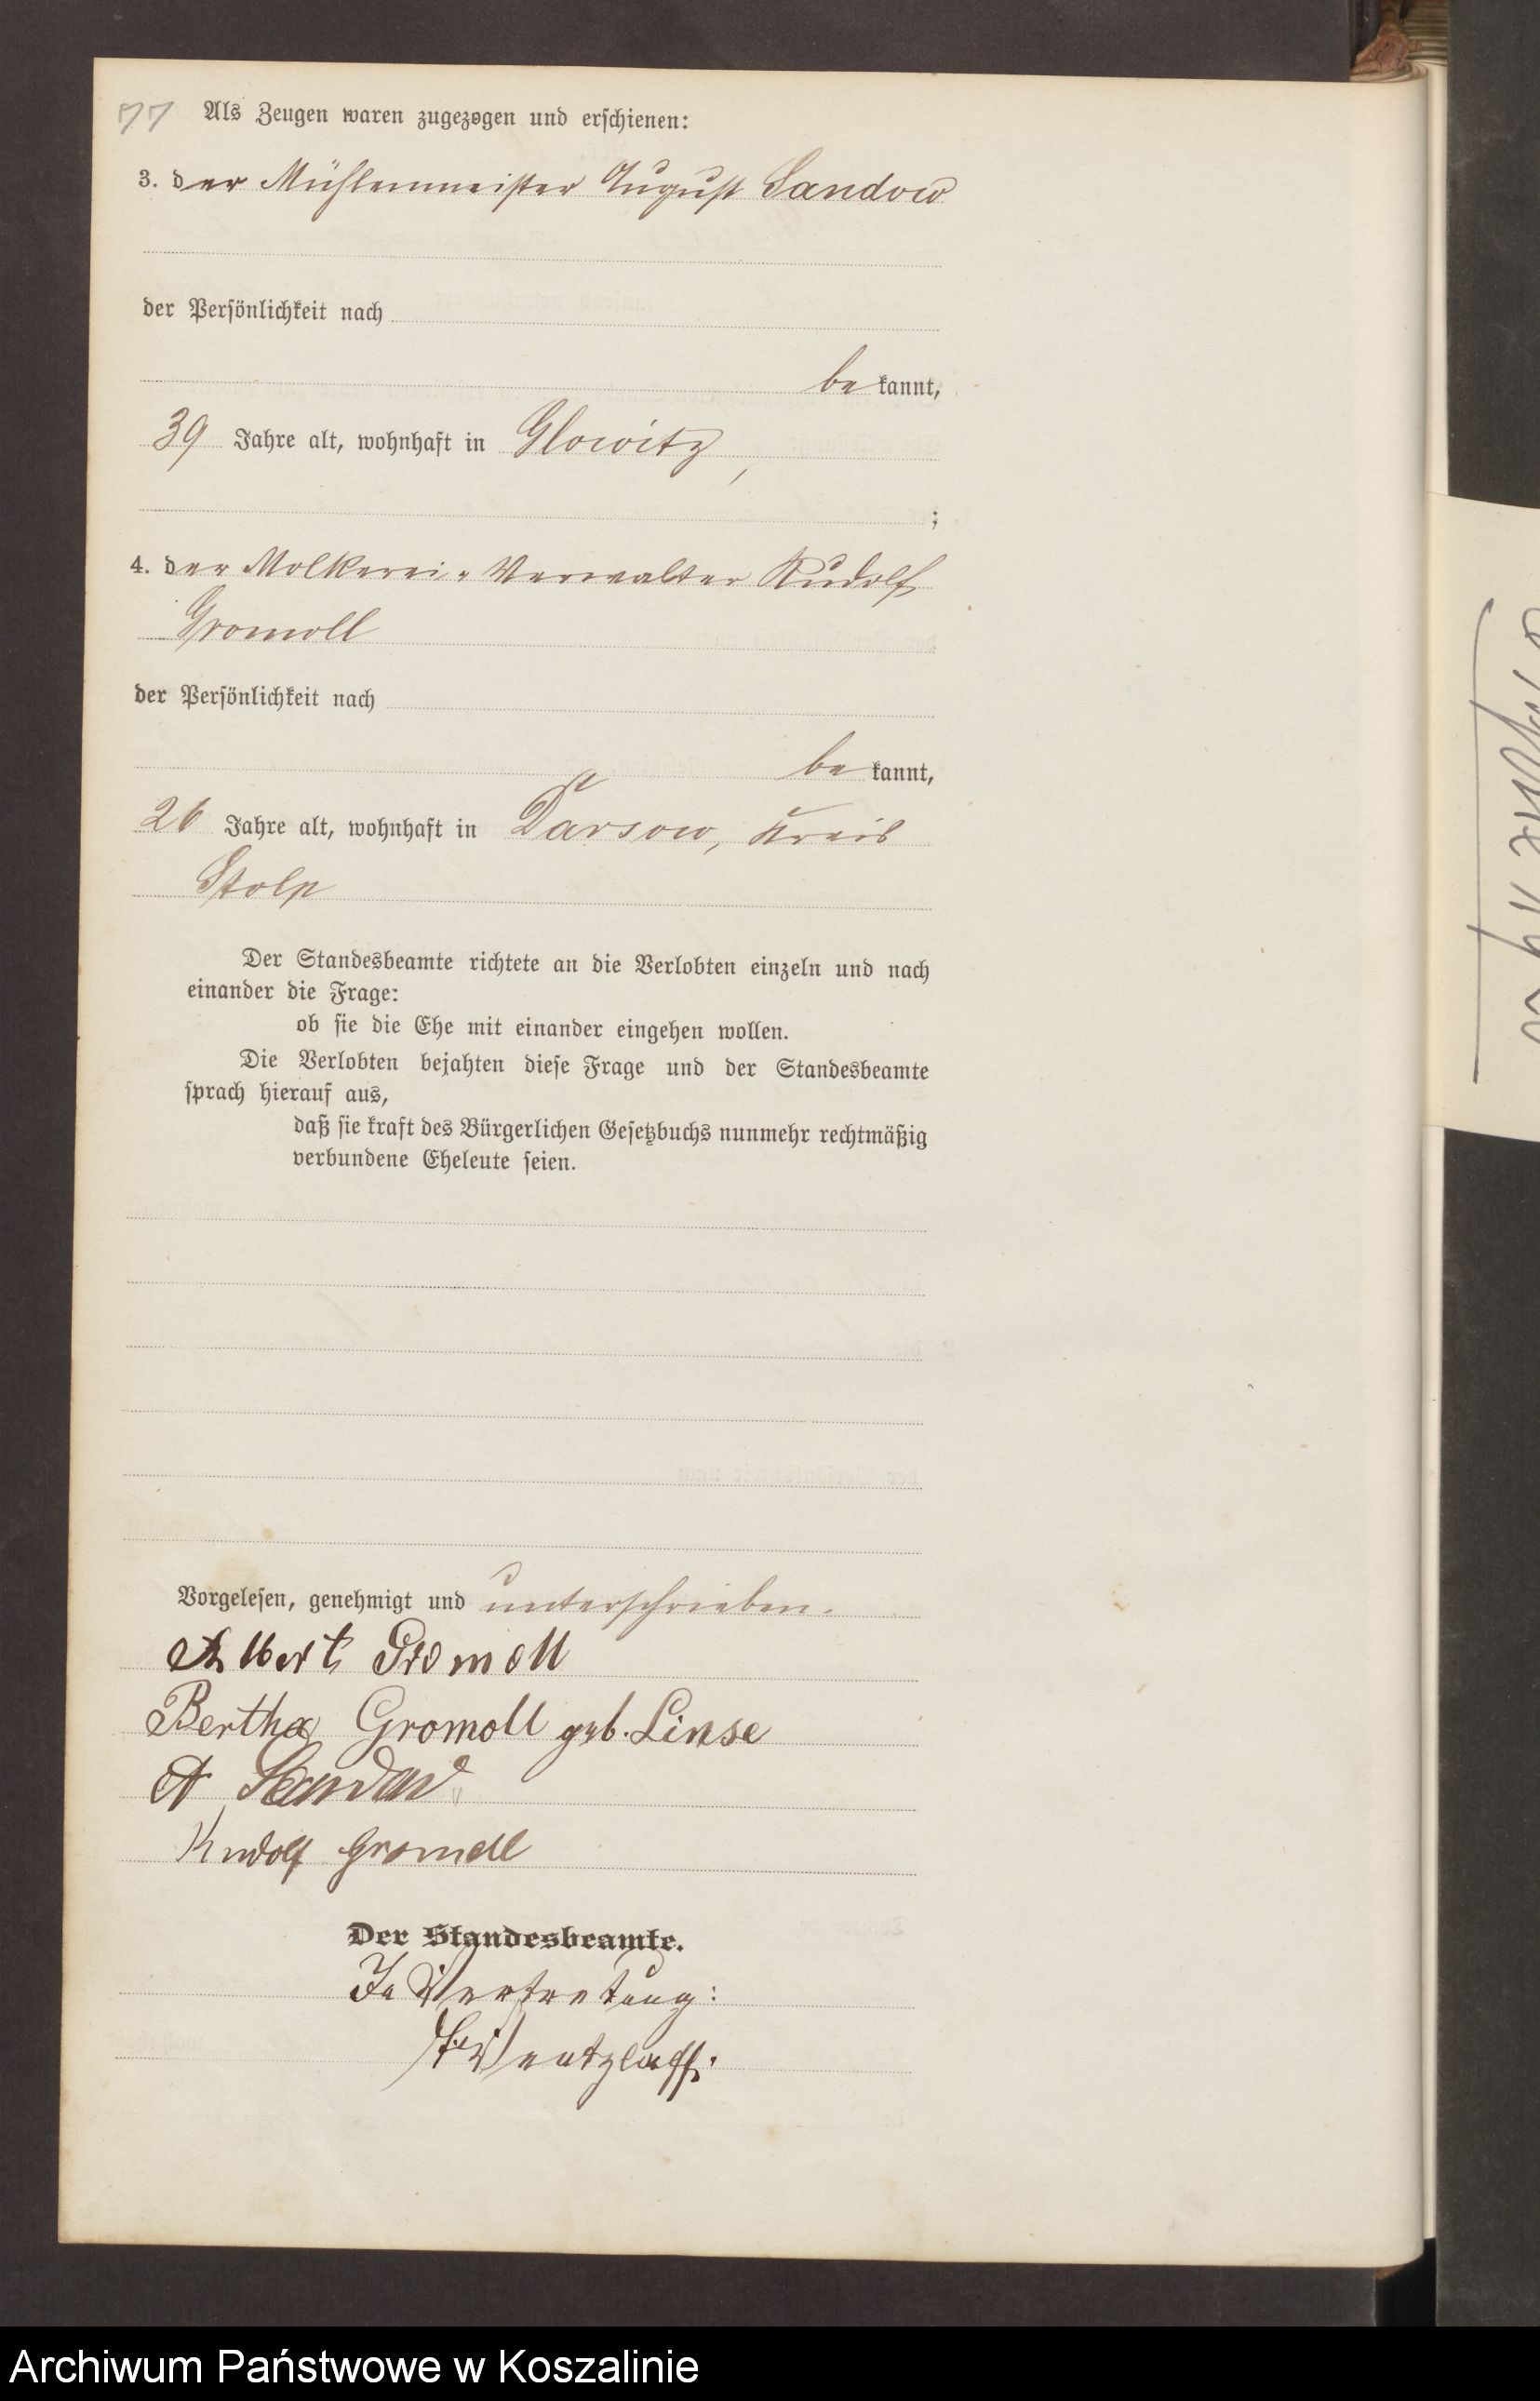 77 Als Zeugen waren zugezogen und erschienen:
3. der Mühlenmeister August Sandow
der Persönlichkeit nach
be kannt,
39 Jahre alt, wohnhaft in Glowitz,
;
4. der Molkerei-Verwalter Rudolf
Gromoll
der Persönlichkeit nach
be kannt,
26 Jahre alt, wohnhaft in Darsow, Kreis
Stolp
Der Standesbeamte richtete an die Verlobten einzeln und nach
einander die Frage:
ob sie die Ehe mit einander eingehen wollen.
Die Verlobten bejahten diese Frage und der Standesbeamte
sprach hierauf aus,
daß sie kraft des Bürgerlichen Gesetzbuchs nunmehr rechtmäßig
verbundene Eheleute seien.
Vorgelesen, genehmigt und unterschrieben.
Albert Gromoll
Bertha Gromoll geb. Linse
A Sandow
Rudolf Gromoll
Der Standesbeamte.
In Vertretung:
Wentzlaff.
Archiwum Państwowe w Koszalinie